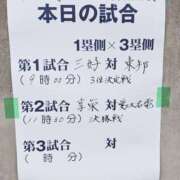 本日の試合
1塁側×3塁側
第1試合 三好 対 東邦
(9時00分) 3位決定戦
第2試合 享栄 対 愛工大名電
(11時30分) 決勝戦
第3試合 対